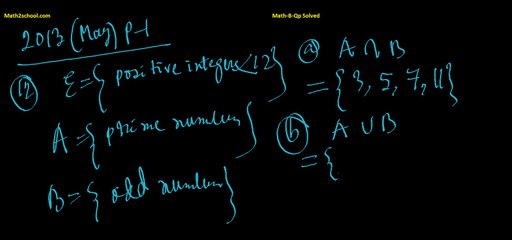 Math2school.com
Math-B-Qp Solved
2013 (May) P-1
ε = { positive integers < 12 }
A = { prime number }
B = { odd number }
(a) A ∩ B
= { 3, 5, 7, 11 }
(b) A ∪ B
= {